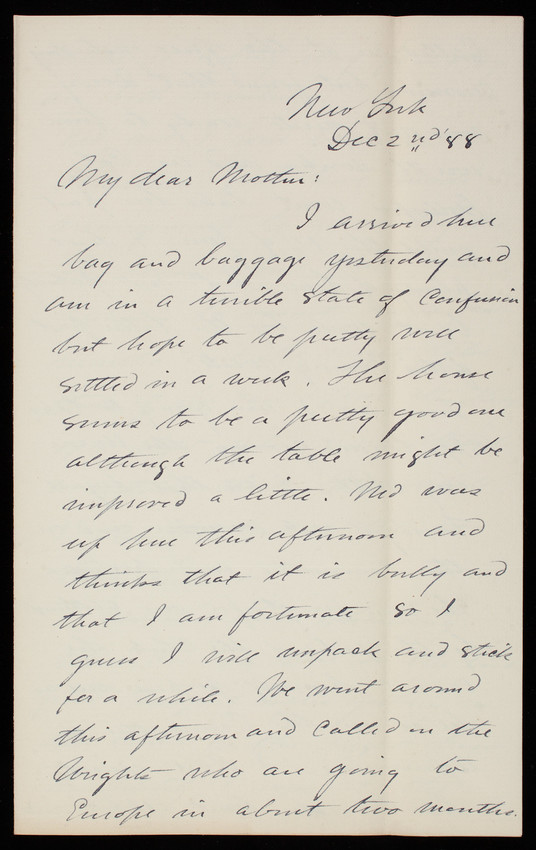 New York
Dec 2nd '88
My dear Mother:
I arrived here
bag and baggage yesterday and
am in a terrible state of confusion
but hope to be pretty well
settled in a week. The house
seems to be a pretty good one
although the table might be
improved a little. Ned was
up here this afternoon and
thinks that it is bully and
that I am fortunate so I
guess I will unpack and stick
for a while. We went around
this afternoon and called on the
Wrights who are going to
Europe in about two months.